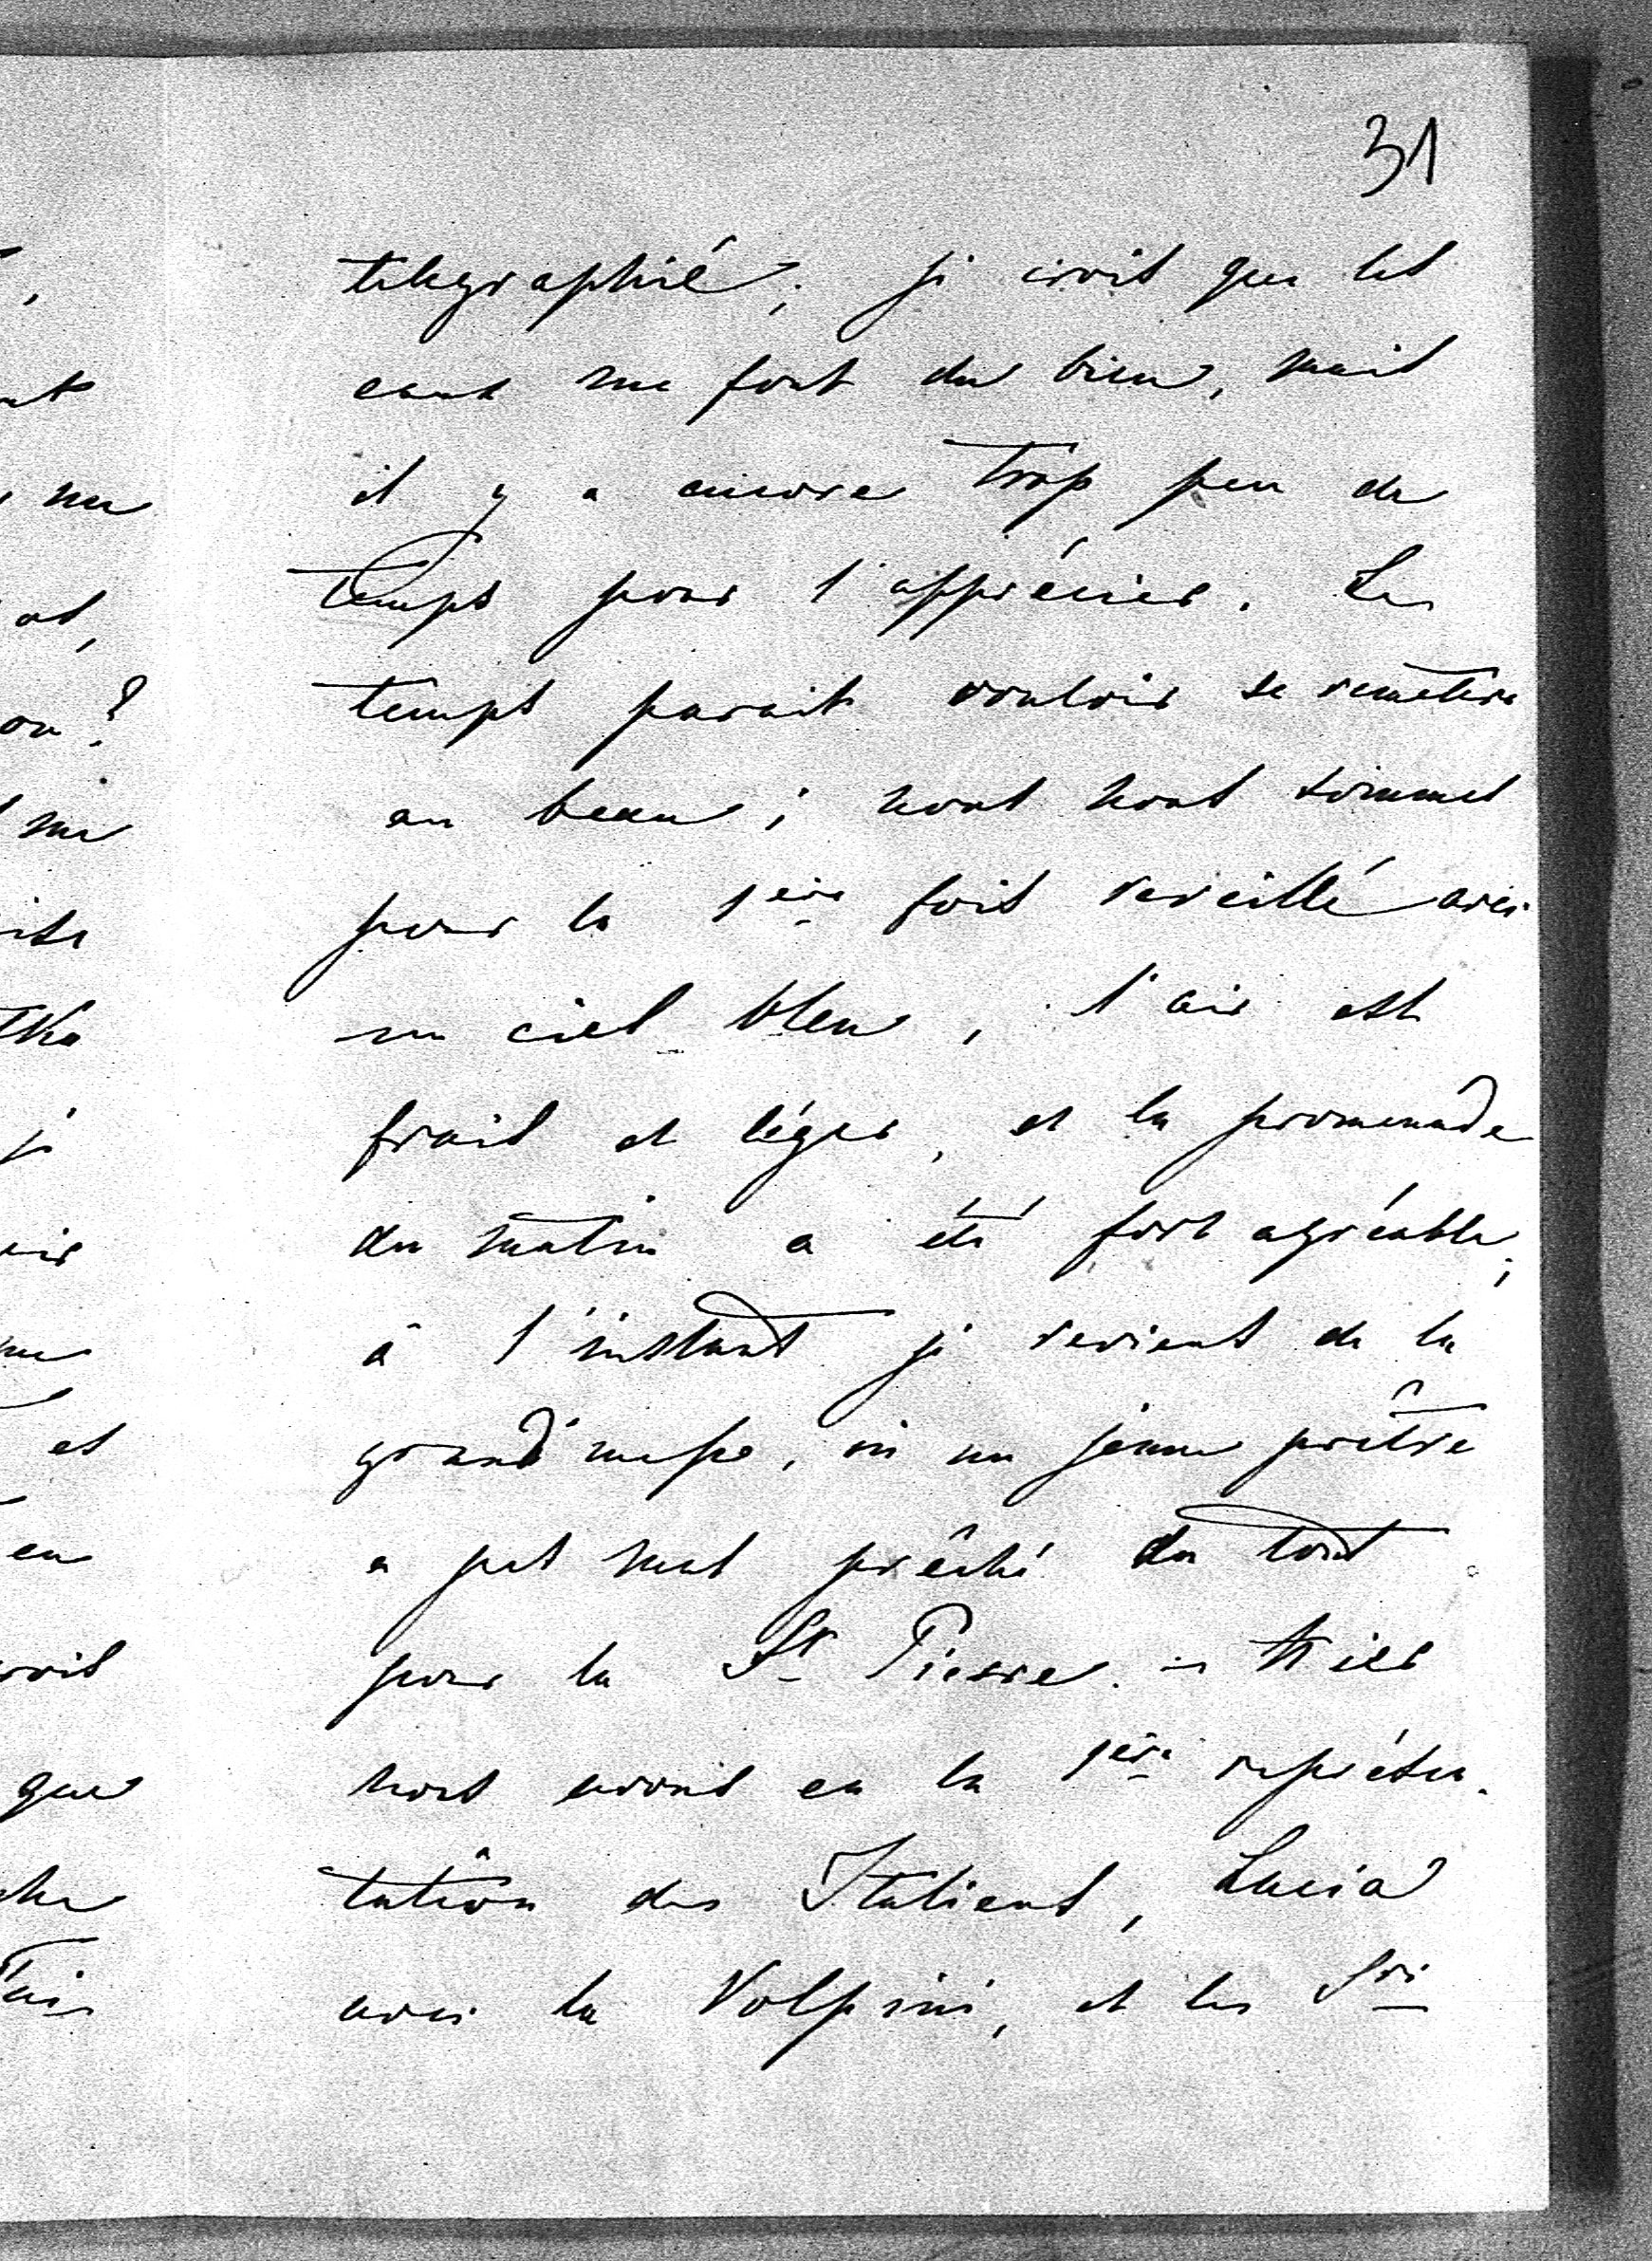 31
telegraphié; je crois que les
eaux me font du bien, mais
il y a encore trop peu de
temps pour l'apprécier. Le
temps parait vouloir se remettre
au beau; nous nous sommes
pour la 1ère fois reveillé avec
un ciel bleu, l'air est
frais et léger, et la promenade
du matin a été fort agréable;
à l'instant je reviens de la
grand'messe, où un jeune prêtre
a pas mal prêché du tout
pour la St Pierre. – Hier
nous avons eu la 1ère représen-
tation des Italiens, Lucia
avec la Volpini, et les Sri